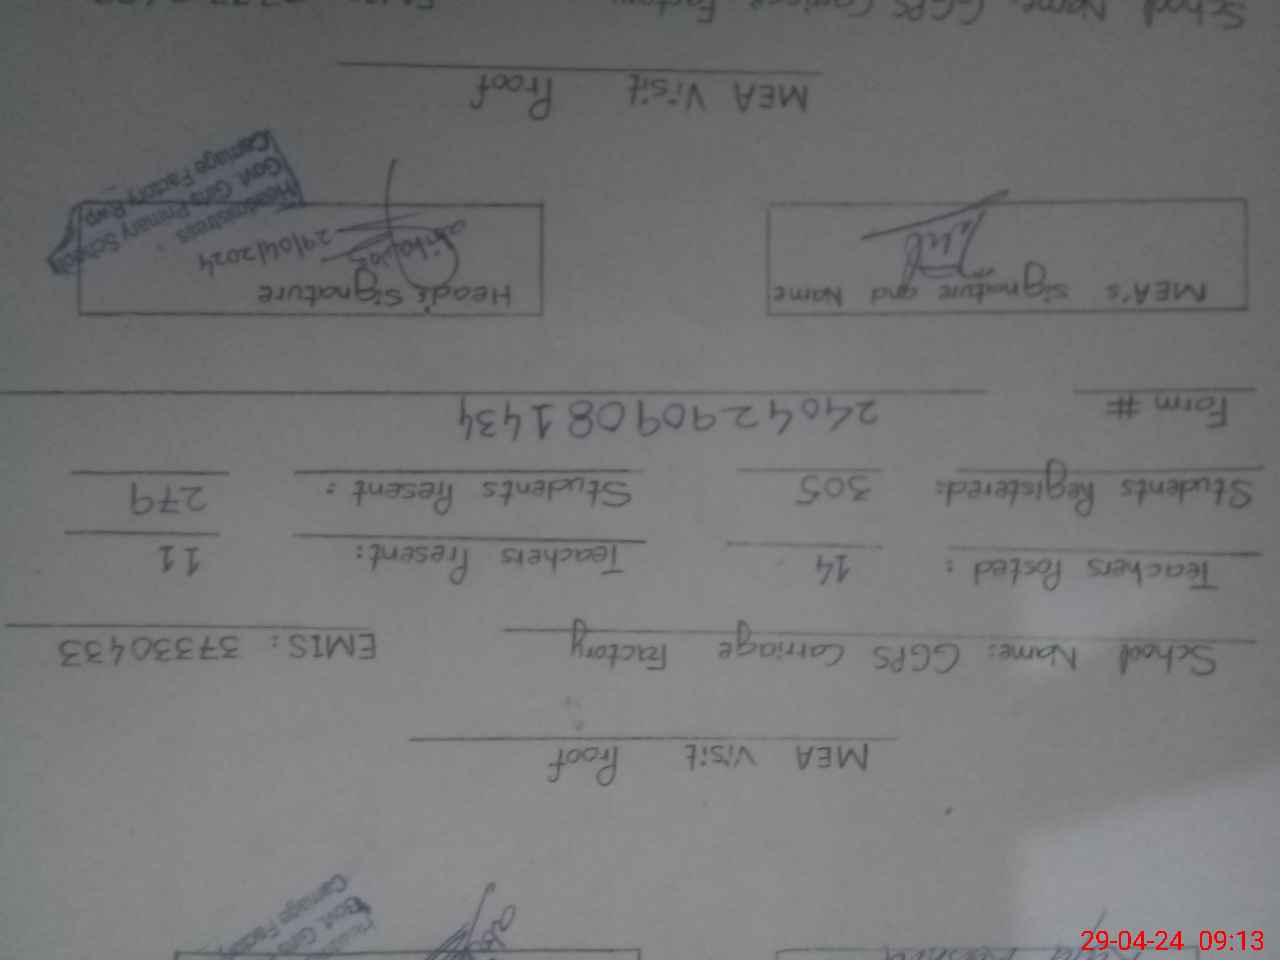 MEA Visit Proof
School Name: GGPS Carriage Factory EMIS: 37330433
Teachers Posted: 14 Teachers Present: 11
Students Registered: 305 Students Present: 279
Form # 240429409081434
MEA's Signature and Name Heads Signature
29/04/2024
Headmistress
Govt. Girls Primary School
Carriage Factory Rwp.
MEA Visit Proof
School Name: GGPS Carriage Factory
29-04-24 09:13